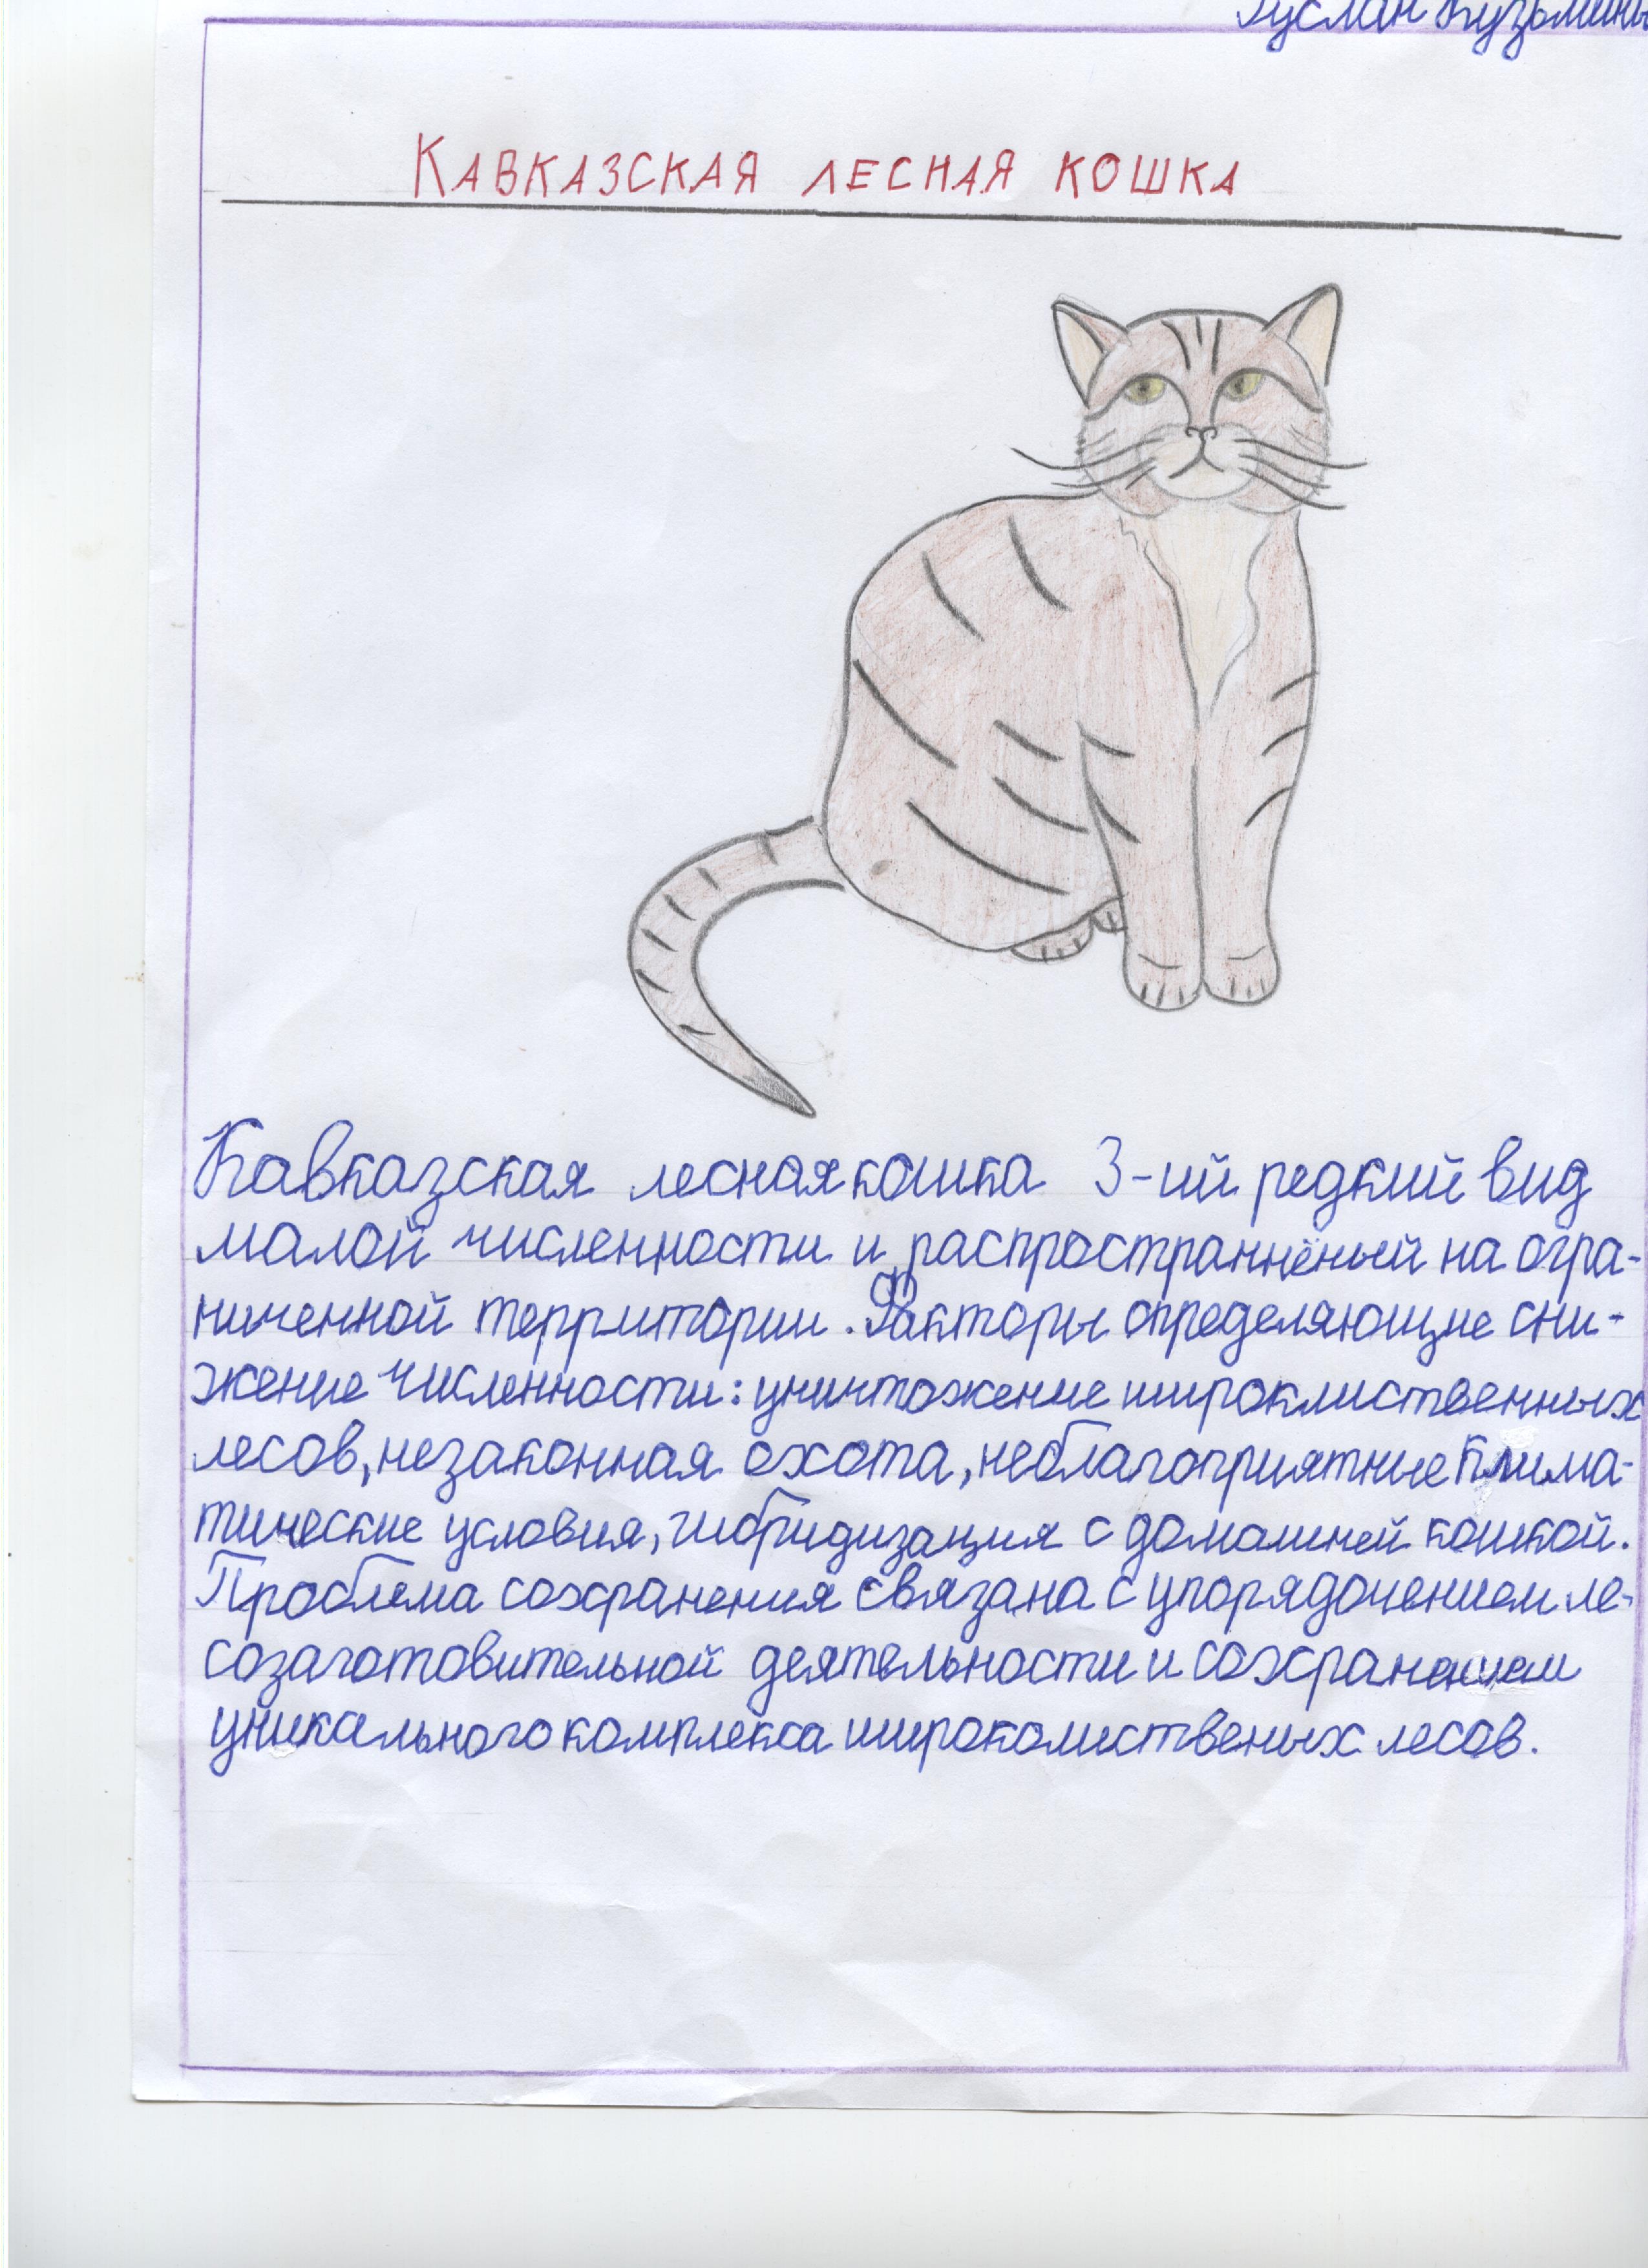 Руслан Кузьмины
Кавказская лесная кошка
Кавказская лесная кошка 3-ий редкий вид
малой численности и распространнёный на огра-
ниченной территории. Факторы определяющие сни-
жение численности: уничтожение широклиственных
лесов, незаконная охота, неблагоприятные клима-
тические условия, гибридизация с домашней кошкой.
Проблема сохранения связана с упорядочением ле-
созаготовительной деятельности и сохранением
уникального комплекса широколиственых лесов.